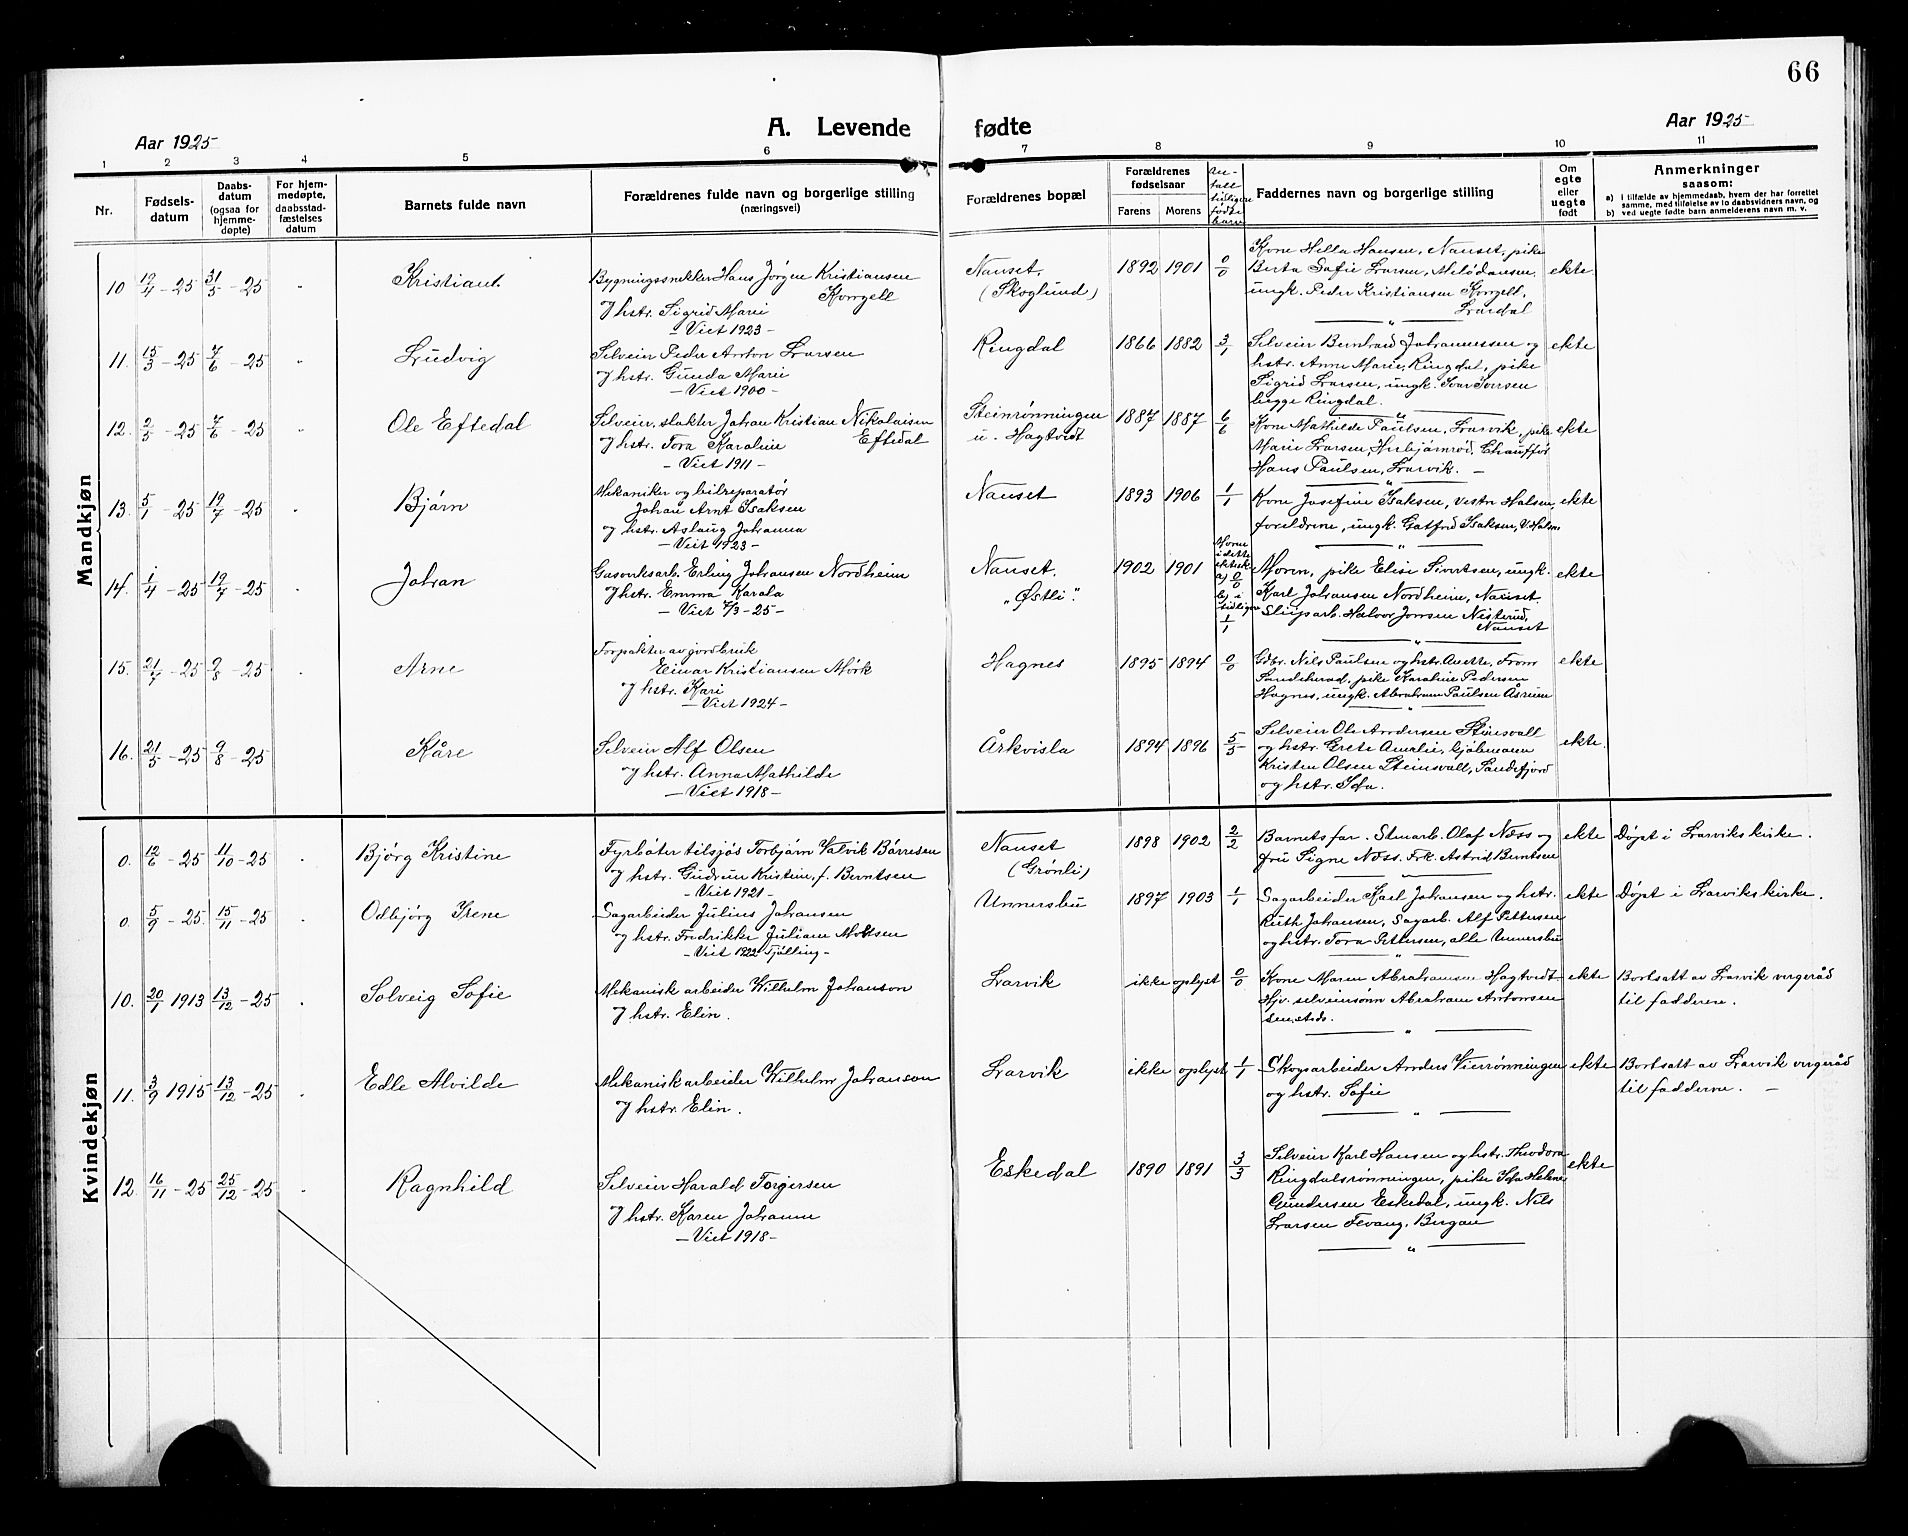 66
Aar 1925
A. Levende fødte
Aar 1925
1 2 3 4 5 6 7 8 9 10 11
Nr.
Fødsels-
datum
Daabs-
datum
(ogsaa for
hjemme-
døpte)
For hjem-
medøpte,
daabsstad-
fæstelses
datum
Barnets fulde navn
Forældrenes fulde navn og borgerlige stilling
(næringsvei)
Forældrenes bopæl
Forældrenes
fødselsaar
Farens Morens
An-
tall
tidligere
fødte
barn
Faddernes navn og borgerlige stilling
Om
egte
eller
uegte
født
Anmerkninger
saasom:
a) i tilfælde av hjemmedaab, hvem der har forrettet
samme, med tilføielse av to daabsvidners navn, og
b) ved uegte fødte barn anmelderens navn m. v.
Mandkjøn
10 19/4 - 25 31/5 - 25 Kristian
Bygningssnekker Hans Jørgen Kristiansen
Kvorgell
og hstr. Sigrid Marie
- Viet 1923 -
Nanset,
(Skoglund)
1892 1901 0/0
Kone Hella Hansen, Nanset, pike
Berta Sofie Larsen,
ungk. Peder Kristiansen Kvorgell,
Lardal
ekte
11. 15/3 - 25 7/6 - 25 Ludvig
Selveier Peder Anton Larsen
og hstr. Gunda Marie
- Viet 1900 -
Ringdal
1866 1882 3/1
Selveier Bernhard Johannessen og
hstr. Anne Marie, Ringdal, pike
Sigrid Larsen, ungk. Ivar Iversen
begge Ringdal.
ekte
12. 2/5 - 25 7/6 - 25 Ole Eftedal
Selveier, slakter Johan Kristian Nikolaisen
Eftedal
og hstr. Tora Karoline
- Viet 1911 -
Steinrønningen
u. Hagtvedt
1887 1887 6/6
Kone Mathilde Paulsen, Larvik, pike
Marie Larsen, Herbjørnrød, Chauffør
Hans Paulsen, Larvik. -
ekte
13. 5/1 - 25 19/7 - 25 Bjørn
Mekaniker og bilreparatør
Johan Arnt Isaksen
og hstr. Aslaug Johanna
- Viet 1923 -
Nanset
1893 1906 1/1
Kone Josefine Isaksen, Vestre Halsen,
foreldrene, ungk. Gotfred Isaksen, V. Halsen
ekte
14. 1/4 - 25 19/7 - 25 Johan
Gasverksarb. Erling Johansen Nordheim
og hstr. Emma Karola
- Viet 7/3 - 25 -
Nanset.
"Østli".
1902 1901
Moren
i dette
ektesk.
a) 0/0
b) i
tidligere
1/1
Moren, pike Elise Sivertsen, ungk.
Karl Johansen Nordheim, Nanset.
Sliparb. Halvor Jonsen Nisterud,
Nanset
ekte
15. 21/7 - 25 9/8 - 25 Arne
Forpakter av jordbruk
Einar Kristiansen Mørk
og hstr. Kari
- Viet 1924 -
Hagnes
1895 1894 0/0
Gdbr. Nils Paulsen og hstr. Anette, From
Sandeherad, pike Karoline Pedersen
Hagnes, ungk. Abraham Paulsen Åsrum
ekte
16. 21/5 - 25 9/8 - 25 Kåre
Selveier Alf Olsen
og hstr. Anna Mathilde
- Viet 1918 -
Årkvisla
1894 1896 5/5
Selveier Ole Andersen Stensvall
og hstr. Grete Amalie, kjøbmann
Kristen Olsen Steinsvall, Sandefjord
og hstr. Ida.
ekte.
Kvindekjøn
0. 12/6 - 25 11/10 - 25 Bjørg Kristine
Fyrbøter tilsjøs Torbjørn Valvik Børresen
og hstr. Gudrun Kristine, f. Berntsen
- Viet 1921 -
Nanset
(Grønli)
1898 1902 2/2
Barnets far. Stenarb. Olaf Næss og
fru Signe Næss. Frk. Astrid Berntsen
ekte
Døpt i Larviks kirke.
0. 5/9 - 25. 15/11 - 25 Odbjørg Irene
Sagarbeider Julius Johansen
og hstr. Fredrikke Juliane Moltsen
- Viet 1922 Tjølling -
Unnersbu
1897 1903 1/1
Sagarbeider Karl Johansen og hstr.
Ruth Johansen, Sagarb. Alf Pettersen
og hstr. Tora Pettersen, alle Unnersbu
ekte
Døpt i Larviks kirke.
10. 20/1 1913 13/12 - 25 Solveig Sofie
Mekanisk arbeider Wilhelm Johanson
og hstr. Elin.
Larvik
ikke oplyst 0/0
Kone Maren Abrahamsen Hagtvedt
Hjv. selveiersønn Abraham Antonsen
sen.stds.
ekte
Bortsatt av Larvik vergeråd
til fadderne.
11. 3/9 1915 13/12 - 25 Edle Alvilde
Mekanisk arbeider Wilhelm Johanson
og hstr. Elin.
Larvik
ikke oplyst 1/1
Skogsarbeider Anders Vierrønningen
og hstr. Sofie
ekte
Bortsatt av Larvik vergeråd
til fadderne. -
12. 16/11 - 25 25/12 - 25 Ragnhild
Selveier Harald Torgersen
og hstr. Karen Johanne
- Viet 1918 -
Eskedal
1890 1891 3/3
Selveier Karl Hansen og hstr. Theodora
Ringdalsrønningen, pike Ida Helene
Gundersen Eskedal, ungk. Nils
Larsen Fevang, Bergan
ekte